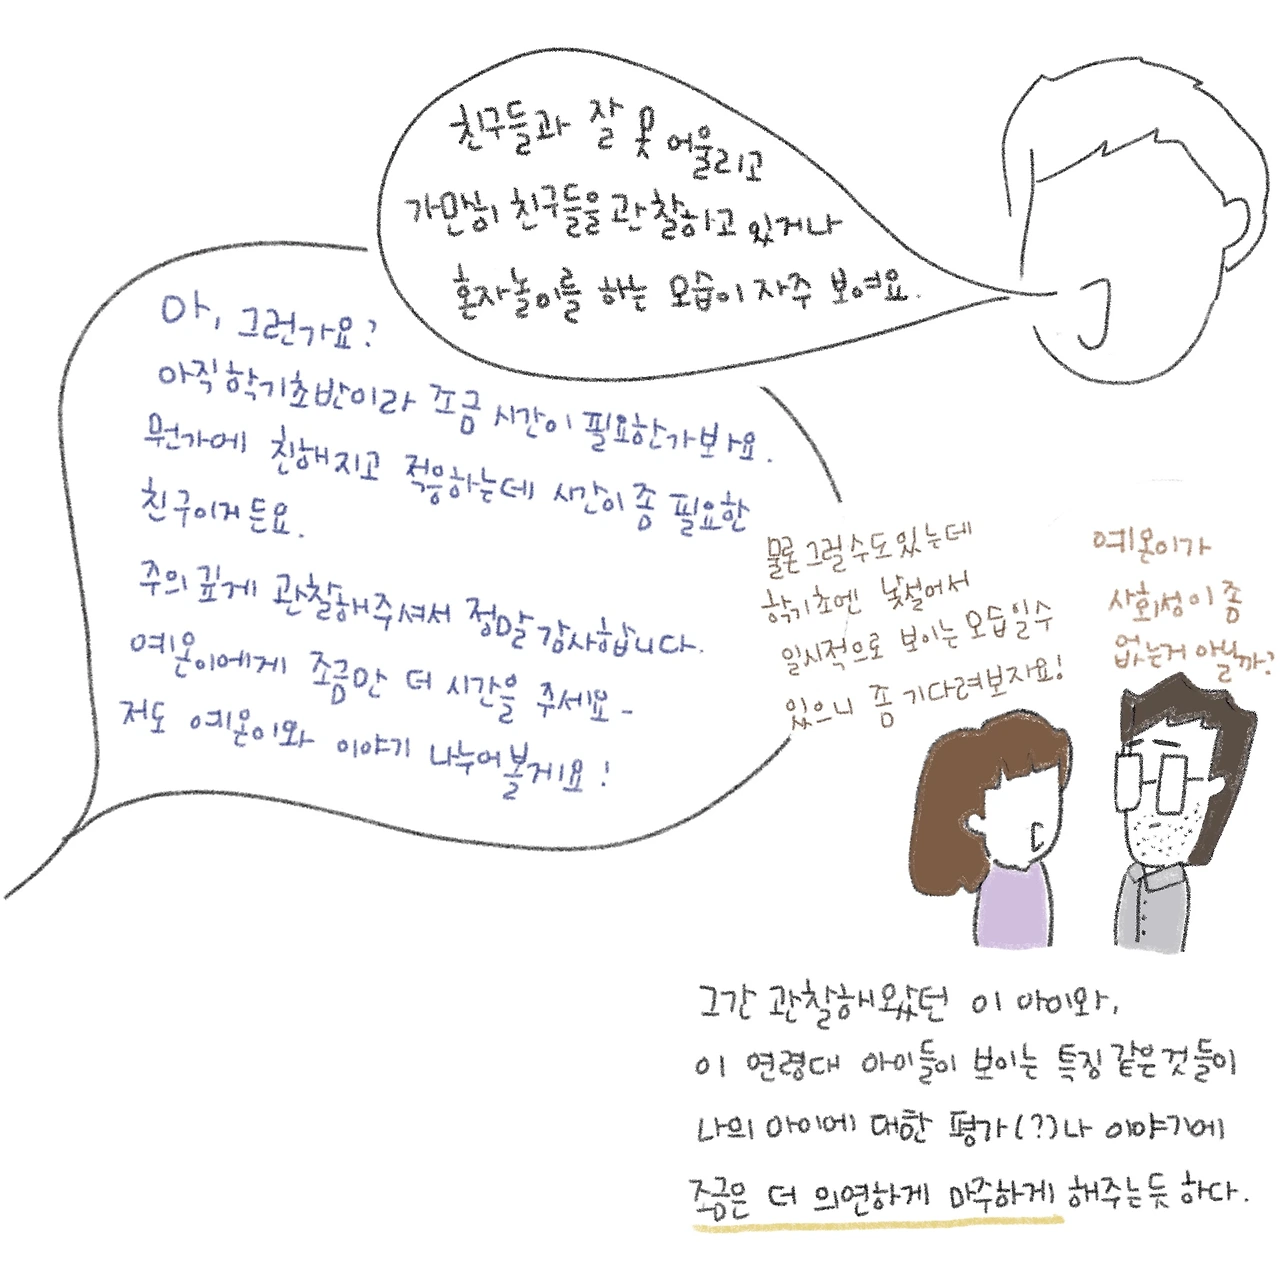 친구들과 잘 못 어울리고
가만히 친구들을 관찰하고 있거나
혼자놀이를 하는 모습이 자주 보여요.
아, 그런가요?
아직 학기초반이라 조금 시간이 필요한가봐요.
뭔가에 친해지고 적응하는데 시간이 좀 필요한
친구이거든요.
주의 깊게 관찰해주셔서 정말 감사합니다.
예온이에게 조금만 더 시간을 주세요-
저도 예온이와 이야기 나누어볼게요!
예온이가
사회성이 좀
없는거 아닐까?
물론 그럴수도있는데
학기초엔 낯설어서
일시적으로 보이는 모습일수
있으니 좀 기다려보자요!
그간 관찰해왔던 이 아이와,
이 연령대 아이들이 보이는 특징 같은것들이
나의 아이에 대한 평가(?)나 이야기에
조금은 더 의연하게 마주하게 해주는듯 하다.